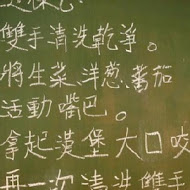 雙手清洗乾淨。
將生菜、洋葱、蕃茄
活動嘴巴。
拿起漢堡大口咬
再一次清洗雙手